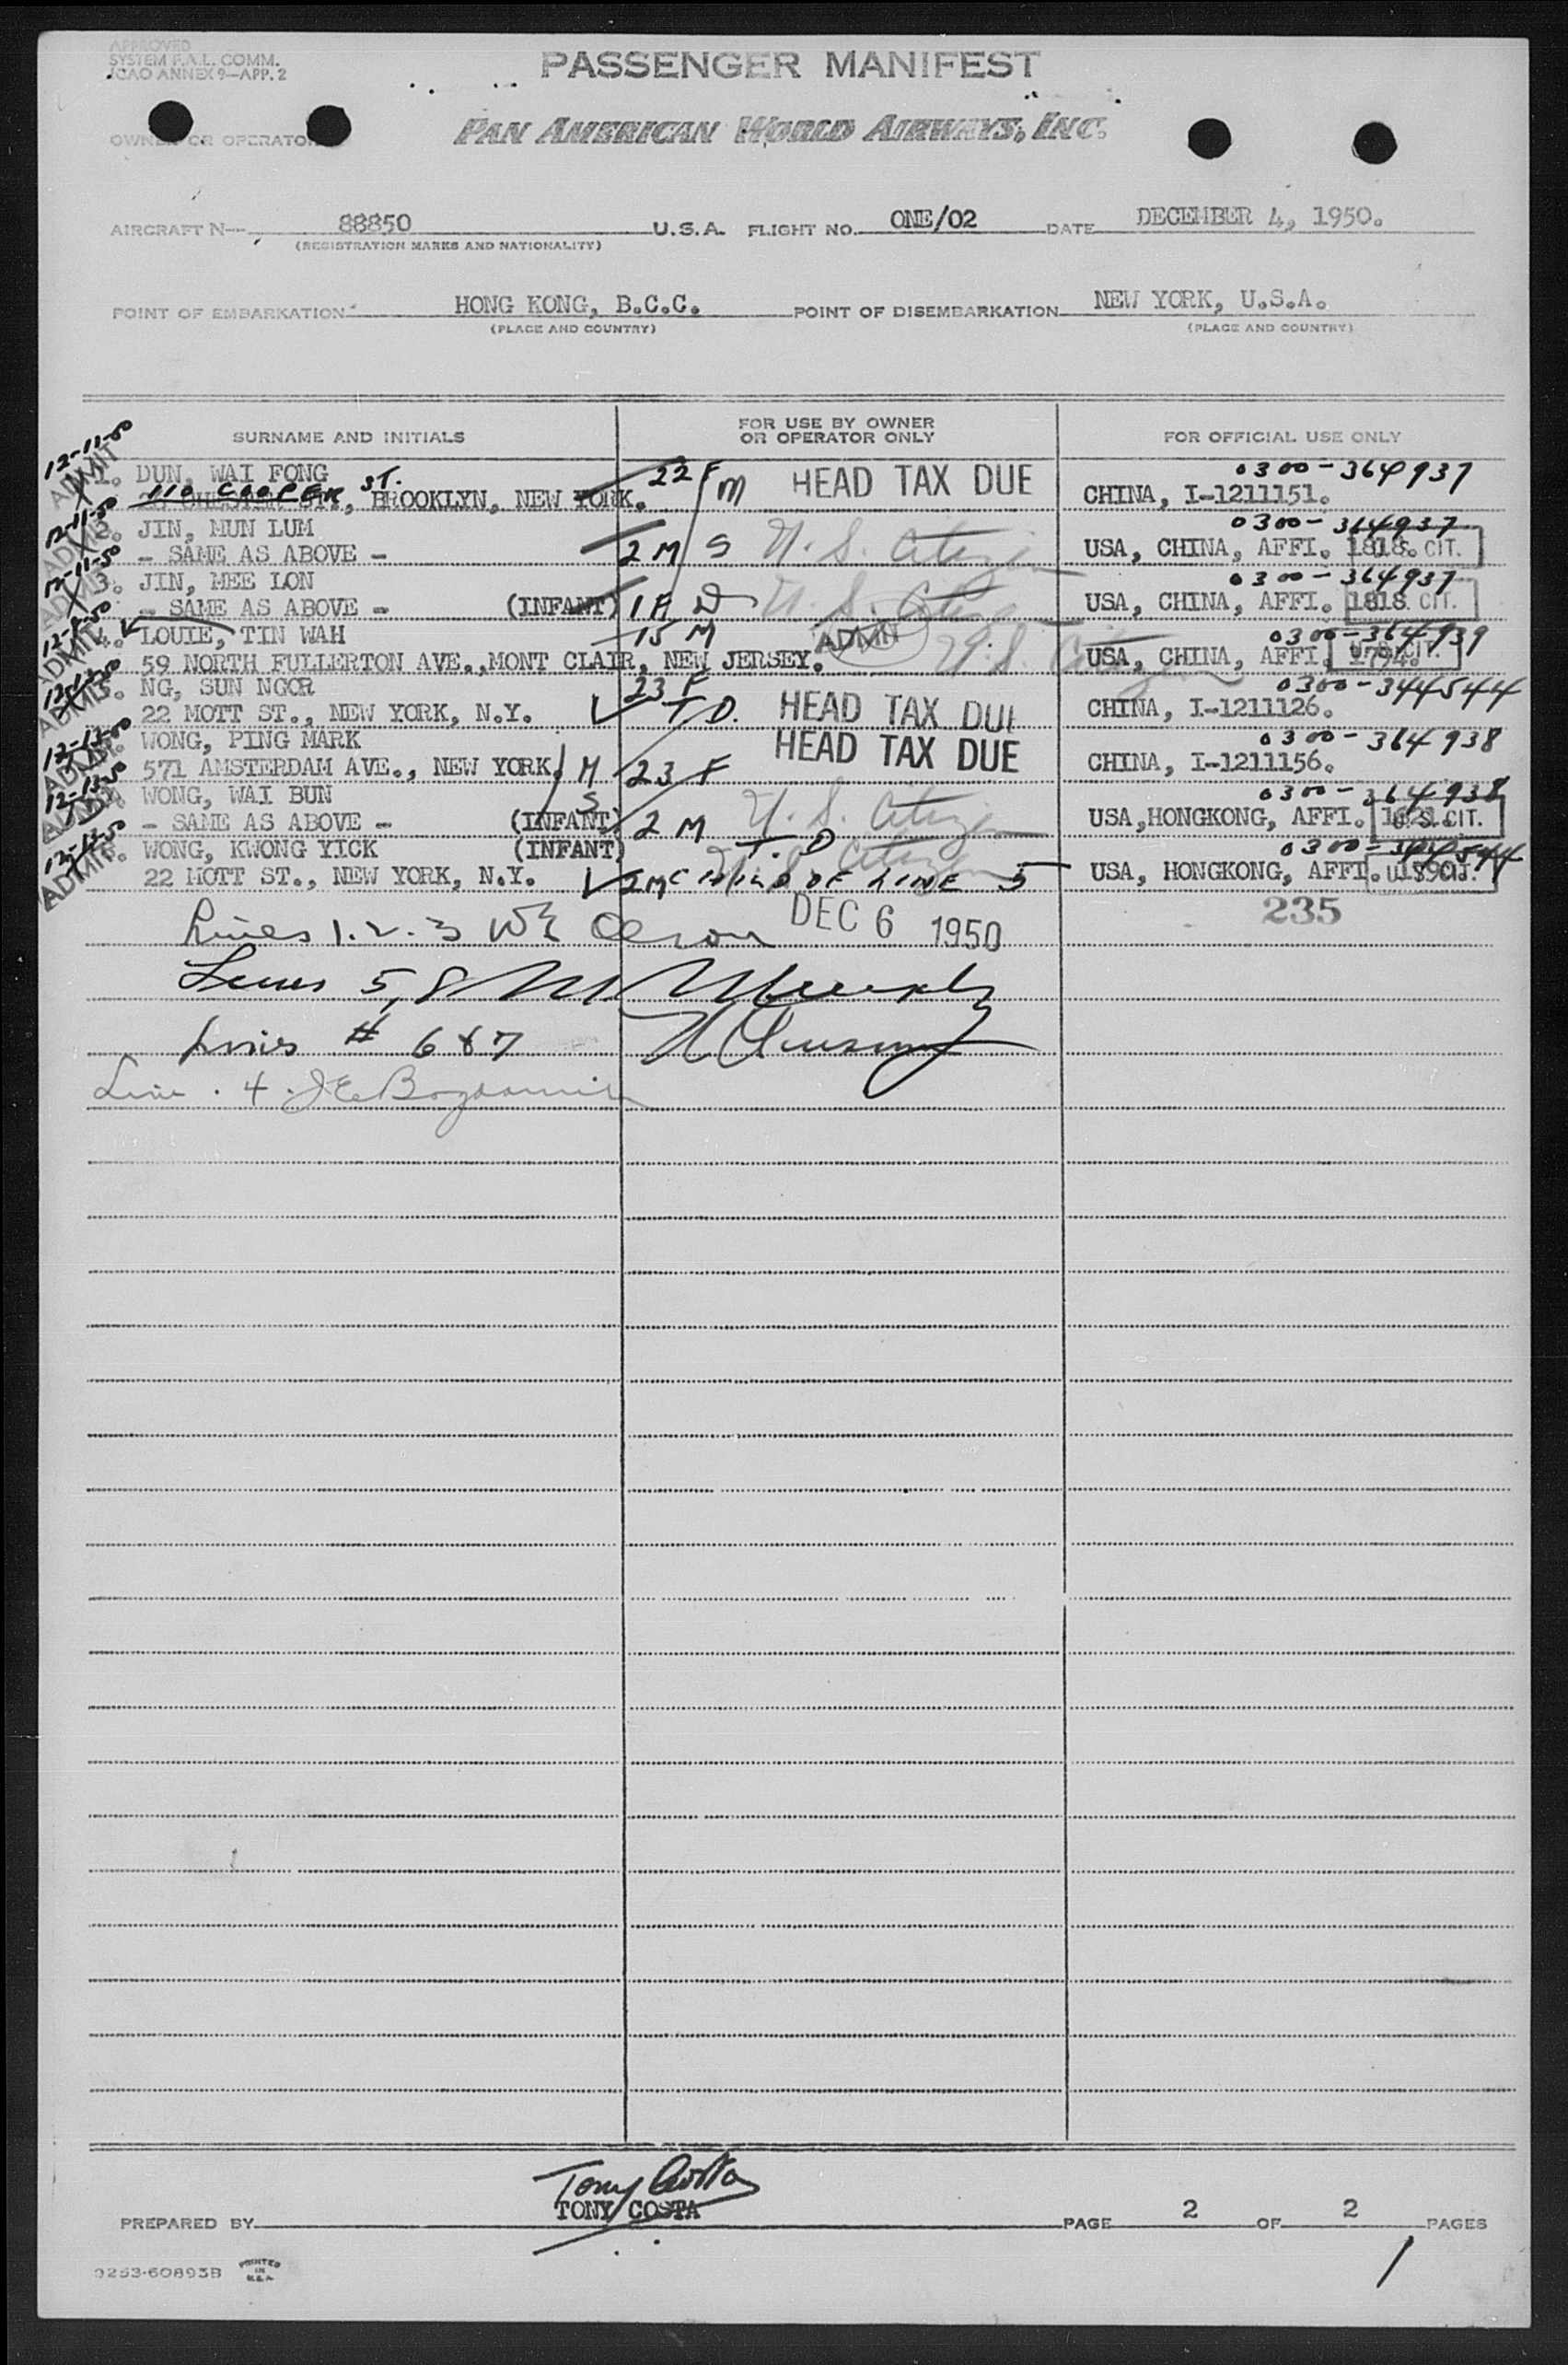 APPROVED
SYSTEM F.A.L. COMM.
ICAO ANNEX 9—APP. 2
PASSENGER MANIFEST
OWNER OR OPERATOR
PAN AMERICAN WORLD AIRWAYS, INC.
AIRCRAFT N— 88850 U.S.A. FLIGHT NO. ONE/02 DATE DECEMBER 4, 1950.
(REGISTRATION MARKS AND NATIONALITY)
POINT OF EMBARKATION HONG KONG, B.C.C. POINT OF DISEMBARKATION NEW YORK, U.S.A.
(PLACE AND COUNTRY) (PLACE AND COUNTRY)
SURNAME AND INITIALS FOR USE BY OWNER OR OPERATOR ONLY FOR OFFICIAL USE ONLY
12-11-50 ADMIT 1. DUN, WAI FONG 22 F M HEAD TAX DUE 0300-364937
110 COOPER ST. BROOKLYN, NEW YORK. CHINA, I-1211151.
12-11-50 2. JIN, MUN LUM 0300-364937
- SAME AS ABOVE - 2 M S U.S. Citizen USA, CHINA, AFFI. 1818. CIT.
12-11-50 3. JIN, MEE LON 0300-364937
- SAME AS ABOVE - (INFANT) 1 F D U.S. Citizen USA, CHINA, AFFI. 1818. CIT.
ADMIT 4. LOUIE, TIN WAH 15 M ADMIT U.S. Citizen 0300-364939
59 NORTH FULLERTON AVE.,MONT CLAIR, NEW JERSEY. USA, CHINA, AFFI. 1794.
5. NG, SUN NGOR 23 F 0300-344544
22 MOTT ST., NEW YORK, N.Y. T D. HEAD TAX DUE CHINA, I-1211126.
12-13-50 WONG, PING MARK HEAD TAX DUE 0300-364938
571 AMSTERDAM AVE., NEW YORK. M 23 F CHINA, I-1211156.
12-13-50 WONG, WAI BUN S 0300-364938
- SAME AS ABOVE - (INFANT) 2 M U.S. Citizen USA,HONGKONG, AFFI. U.S. CIT.
WONG, KWONG YICK (INFANT) T. D U.S. Citizen 0300-344544
ADMIT 22 MOTT ST., NEW YORK, N.Y. 2M CHILD OF LINE 5 USA, HONGKONG, AFFI.
Lines 1.2.3 DEC 6 1950 235
Lines 5,8
Lines # 6 & 7
Line . 4
PREPARED BY Tony Costa
TONY COSTA PAGE 2 OF 2 PAGES
9253-60893B PRINTED IN U.S.A.